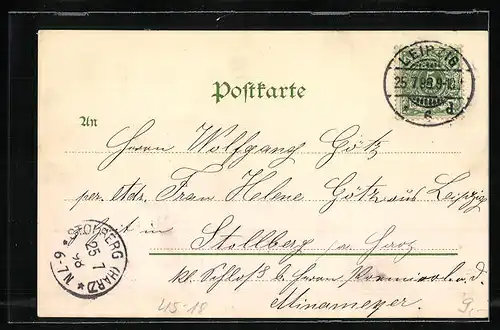 LEIPZIG
25.7.98.9-10
* 6 d.
5
Postkarte
An
Herrn Wolfgang Götz
per. Adr. Frau Helene Götz aus Leipzig
zeit in
Stollberg a. Harz
kl. Schloß b. Herrn
Minameyer.
STOLBERG (HARZ)
25 7
98
* N. 6-7 *
45-18
9,-